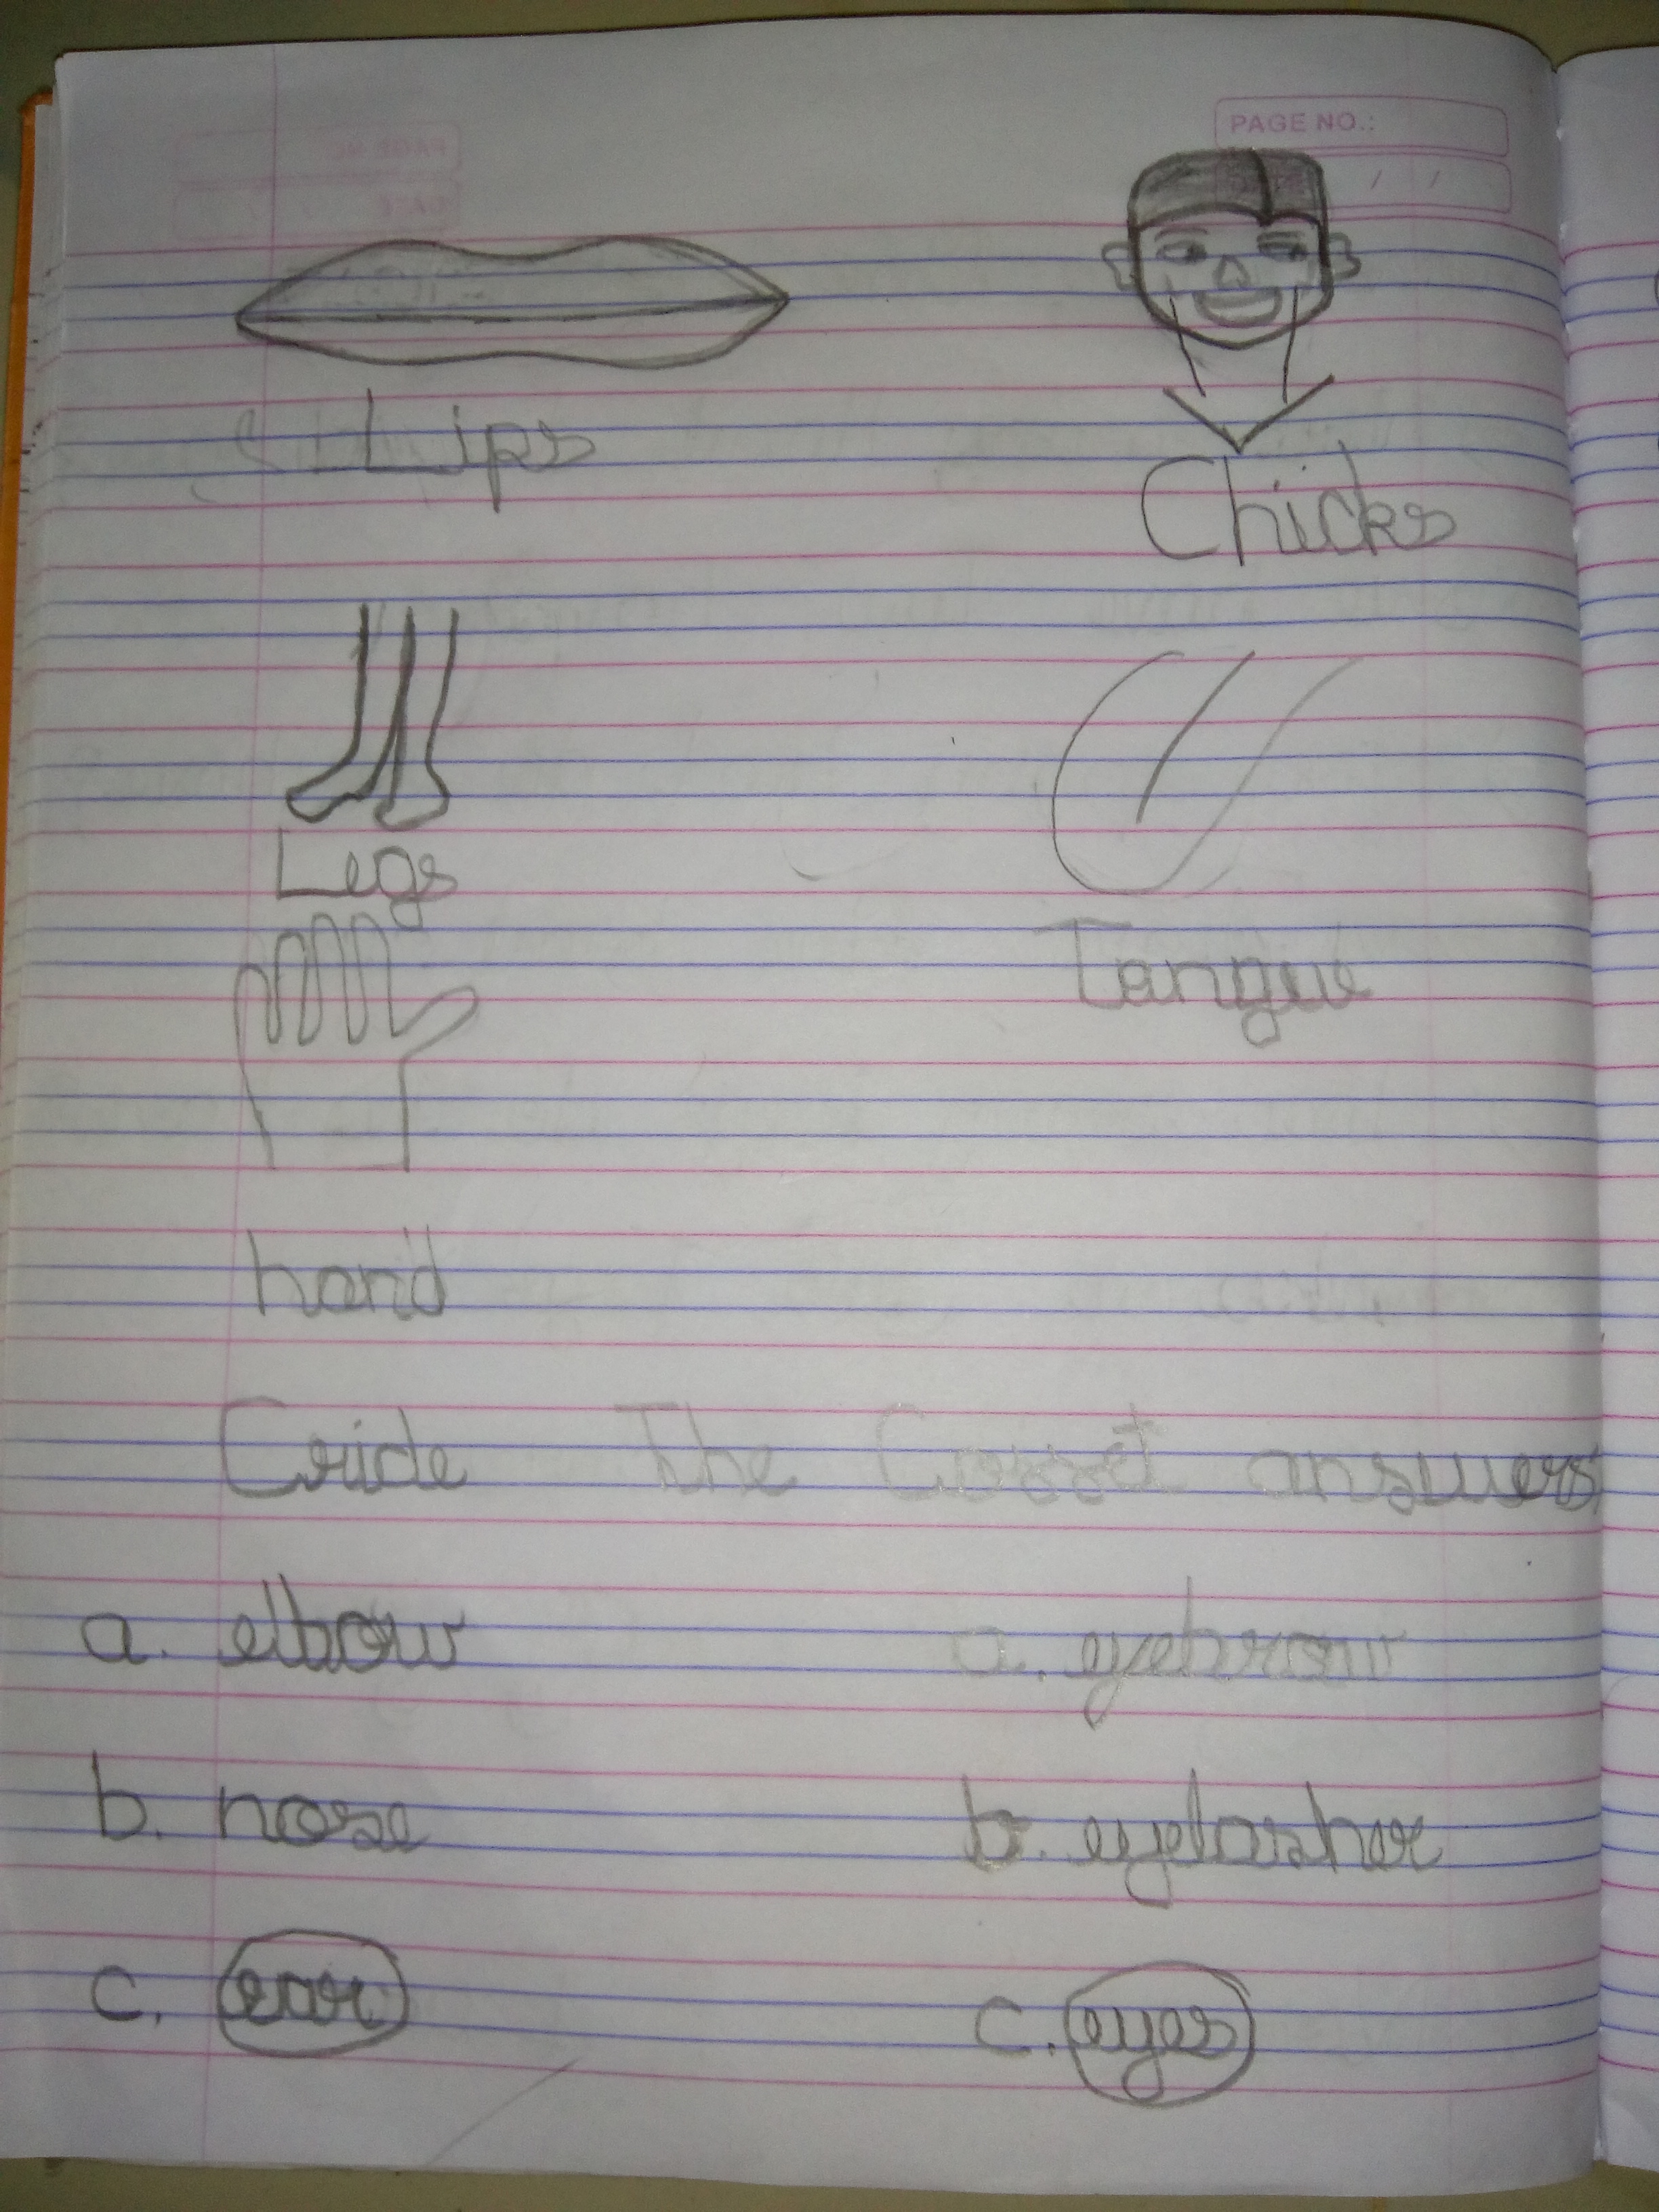 PAGE NO.:
Lips
Chicks
Legs
Tangue
hand
Cricle The Corrct answers
a. elbow a. eyebrow
b. nose b. eyelasher
c. ear c. eyes